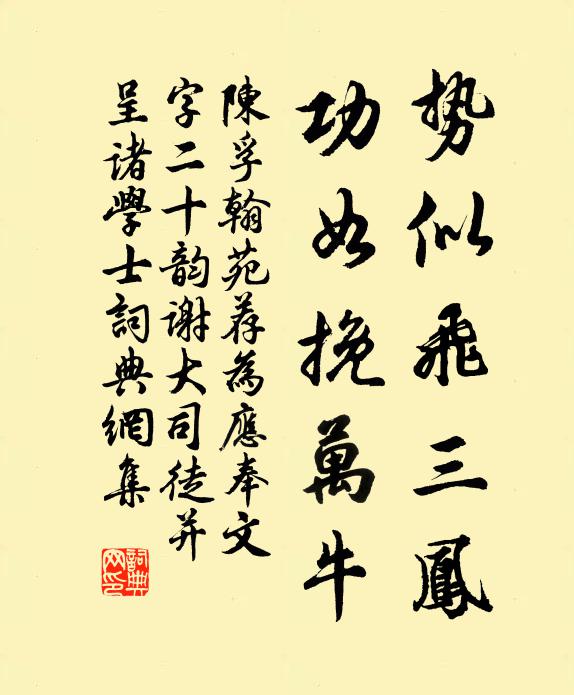 势似飛三鳳
功如挽萬牛
陳孚翰苑荐為應奉文
字二十韵谢大司徒并
呈诸學士詞典網集
詞典网印